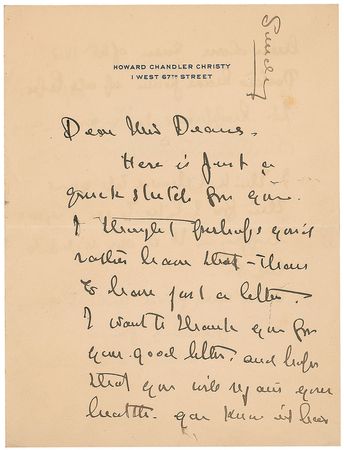 HOWARD CHANDLER CHRISTY
1 WEST 67TH STREET
Sunday
Dear Miss Deane.
Here is just a
quick sketch for you.
I thought perhaps you'd
rather have that - than
to have just a letter.
I want to thank you for
your good letter. and hope
that you will regain your
health. you know it has